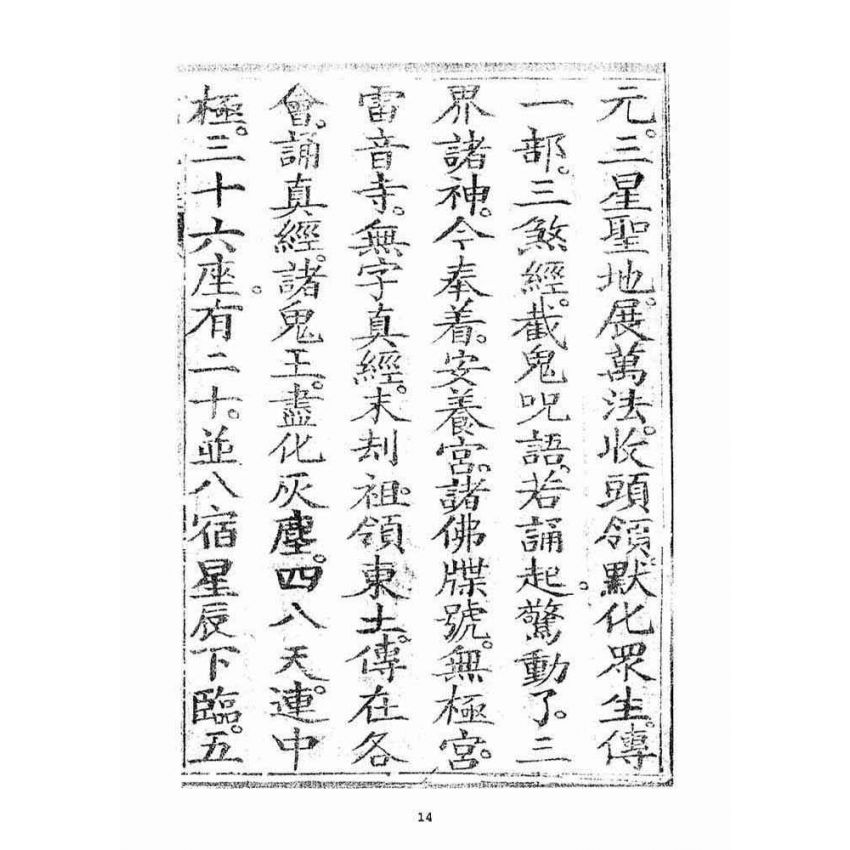 元。三星聖地。展萬法。收頭領。默化眾生。傳
一部。三煞經。截鬼呪語。若誦起。驚動了。三
界諸神。今奉着。安養宮。諸佛牒號。無極宮。
雷音寺。無字真經。末刼祖。領東土。傳在各
會。誦真經。諸鬼王。盡化灰塵。四八天。連中
極。三十六座。有二十。並八宿星辰下臨。五
14